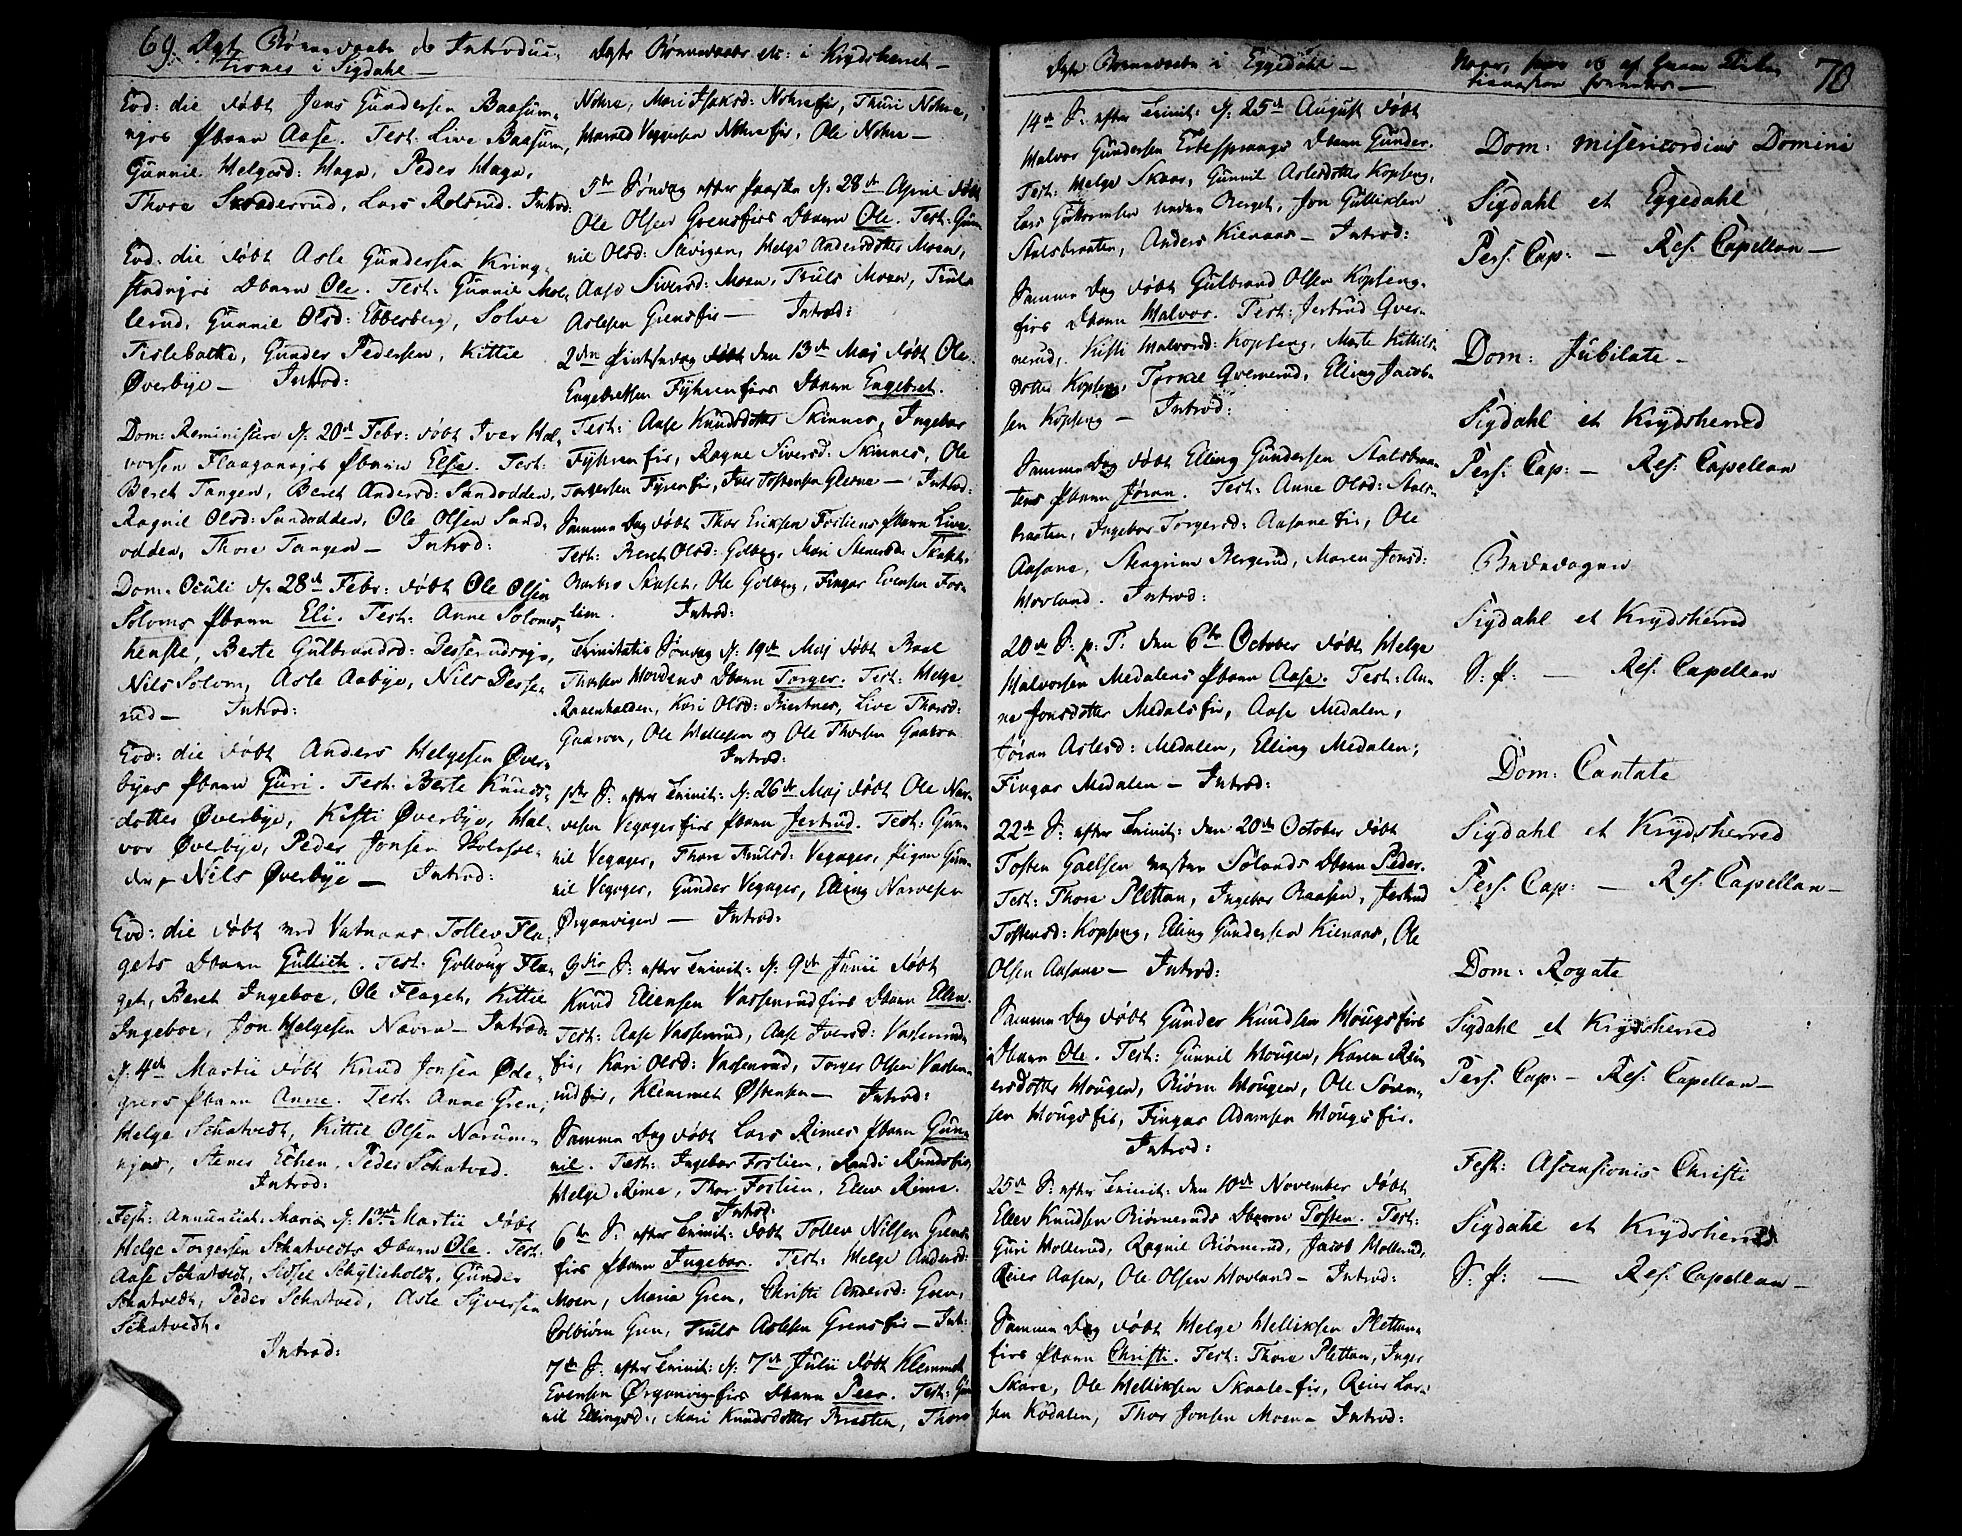 69. Dagte Børnedaabe og Introduc-
tiones i Sigdahl —
Eod: die døbt Jens Gundersen Baasum-
ngs Pbarn Aase. Test: Live Baasum,
Gunnil Helgesd: Haga, Peder Haga,
Thore Skradderrud, Lars Rolsrud. Introd:
Eod: die døbt Asle Gundersen Kring-
stadngs Dbarn Ole. Test: Gunnil Mol-
lerud, Gunnil Olsd: Ebbesberg, Solve
Tislebakke, Gunder Pedersen, Kittil
Øverbye — Introd:
Dom: Reminiscere d: 20de Febr: døbt Iver Hal-
vorsen Flaaganngs Pbarn Else. Test:
Beret Tangen, Beret Andersd: Sandodden,
Ragnil Olsd: Sandodden, Ole Olsen Sand-
odden, Thore Tangen — Introd:
Dom. Oculi d: 28de Febr: døbt Ole Olsen
Soloms Pbarn Eli. Test: Anne Solomp-
henste, Berte Gulbrandsd:
Nils Solom, Asle Aabye, Nils Besse-
rud — Introd:
Eod: die døbt Anders Helgesen Øver-
byes Pbarn Guri. Test: Berte Knuds-
dotter Øverbye, Kisti Øverbye, Hal-
vor Øverbye, Peder Jonsen Holmsl-
Nils Øverbye — Introd:
Eod: die døbt ved Vatnaas Tollev Fla-
gets Dbarn Gullich. Test: Gollaug Fla-
get, Beret Ingeboe, Ole Flaget, Kittil
Ingeboe, Jon Helgesen Navra — Introd:
d: 4de Martii døbt Knud Jonsen Øde-
grens Pbarn Anne. Test: Anne Gren,
Helge Schatvedt, Kittil Olsen Narum-
njad, Stener Echen, Peder Schatved.
Introd:
Fest: Annunciat: Mariæ d: 13de Martii døbt
Helge Torgersen Schatvedts Dbarn Ole. Test:
Aase Schatvedt, Sidsel Schylieholdt, Gunder
Schatvedt, Peder Schatved, Asle Syversen
Schatvedt.
Introd:
Dagte Børnedaabe etc: i Krydsherret —
Nohre, Mari Isaksd: Nohrefir, Thuri Nohre,
Harald Veggesen Nohrefir, Ole Nohre —
5te Søndag efter Paaske d: 28de April døbt
Ole Olsen Grensfirs Dbarn Ole. Test: Gun-
nil Olsd: Skringen, Helge Andersdotter Moen,
Aase Siversd: Moen, Truls Moen, Truls
Aslesen Grensfir — Introd:
2den Pintsedag den 13de Maj døbt Ole
Engebretsen Fyhrenfirs Dbarn Engebret.
Test: Aase Knudsdotter Skinnes, Ingebor
Fyhrenfir, Ragne Siversd: Skinnes, Ole
Torgersen Fyrenfir, Iver Tostensen Glesne — Introd:
Samme Dag døbt Thor Eriksen Forliens Pbarn Live.
Test: Beret Olsd: Golberg, Mari Stenersd: Skaset,
Barbro Skaset, Ole Golberg, Fingar Evensen For-
lien. Introd:
Trinitatis Søndag d: 19de Maj døbt Boel
Thorsen Hovdens Dbarn Torger. Test: Helge
Ravenhalden, Kari Olsd: Biertnes, Live Thorsd:
Gaaren, Ole Hellesen og Ole Thorsen Gaaren
Introd:
1ste S: efter Trinit: d: 26de Maj døbt Ole Nar-
vesen Vegagerfirs Pbarn Jertrud. Test: Gun-
nil Vegager, Thore Trulsd: Vegager, Pigen Gun-
nil Vegager, Gunder Vegager, Elling Narvesen
Ørgenvigen — Introd:
3die S: efter Trinit: d: 9de Junii døbt
Knud Ellensen Vassenrudfirs Dbarn Ellen.
Test: Aase Vassenrud, Aase Iversd: Vassenrud-
fir, Kari Olsd: Vassenrud, Torger Olsen Vassen-
rudfir, Klemmet Østensen — Introd:
Samme Dag døbt Lars Rimes Pbarn Gun-
nil. Test: Ingebor Forlien, Randi Rundsfir,
Helge Rime, Thor Forlien, Ellev Rime.
Introd:
6te S: efter Trinit: døbt Tollev Nilsen Grens-
firs Pbarn Ingebor. Test: Helge Andersd:
Moen, Maria Gren, Christi Andersd: Gren,
Colbiørn Gren, Truls Aslesen Grensfir — Int:
7de S: efter Trinit: d: 7de Julii døbt Klemmet
Evensen Ørgenvigfirs Dbarn Peer. Test: Gun-
nil Ellingsd:, Mari Knudsdotter Braaten, Thore
Dagte Børnedaabe i Eggedahl —
14de S: efter Trinit: d: 25de August døbt
Halvor Gundersen Erbesprangs Dbarn Gunder.
Test: Helge Skaar, Gunnil Aslesdotter Kopseng,
Lars Guttormsen neden Berget, Jon Gulliksen
Statsbraaten, Anders Kienaas — Introd:
Samme Dag døbt Gulbrand Olsen Kopseng-
firs Dbarn Halvor. Test: Jertrud Qver-
nerud, Kisti Halvorsd: Kopseng, Marte Kittils-
dotter Kopseng, Torkel Qvernerud, Elling Jacob-
sen Kopseng — Introd:
Samme Dag døbt Elling Gundersen Statsbraa-
tens Pbarn Jøran. Test: Anne Olsd: Stats-
braaten, Ingebor Torgersd: Aasanefir, Ole
Aasane, Stengrim Bergerud, Maren Jonsd:
Hovland. Introd:
20de S: p: T: den 6te October døbt Helge
Halvorsen Medalens Pbarn Aase. Test: An-
ne Jonsdotter Medalsfir, Aase Medalen,
Jøran Aslesd: Medalen, Elling Medalen,
Fingar Medalen — Introd:
22de S: efter Trinit: den 20de October døbt
Tosten Gaelsen nestre Solands Dbarn Peder.
Test: Thore Pletten, Ingebor Braasen, Jertrud
Tostensd: Kopseng, Elling Gundersen Kienaas, Ole
Olsen Aasane — Introd:
Samme Dag døbt Gunder Knudsen Hougsfirs
Dbarn Ole. Test: Gunnil Hougen, Karen Rei-
ersdotter Hougen, Biørn Hougen, Ole Soren-
sen Hougsfir, Fingar Adamsen Hougsfir.
Introd:
25de S: efter Trinit: den 10de November døbt
Ellev Knudsen Biørneruds Dbarn Tosten. Test:
Guri Hollerud, Ragnil Biørnerud, Jacob Hollerud,
Reier Aasen, Ole Olsen Hovland — Introd:
Samme Dag døbt Helge Helliksen Pletten-
firs Pbarn Christi. Test: Thore Pletten, Inger
Skare, Ole Helliksen Skaalefir, Reier Lar-
sen Kødalen, Thor Jonsen Moen — Introd:
70
Dom: Misericordius Domini
Sigdahl et Eggedahl
Pers: Cap: — Res: Capellan —
Dom: Jubilate —
Sigdahl et Krydsherred
Pers: Cap: — Res: Capellan
Bededagen
Sigdahl et Krydsherred
S: P: — Res: Capellan
Dom: Cantate
Sigdahl et Krydsherred
Pers: Cap: — Res: Capellan —
Dom: Rogate
Sigdahl et Krydsherred
Pers: Cap: — Res: Capellan —
Fest: Ascensionis Christi
Sigdahl et Krydsherred
S: P: — Res: Capellan —